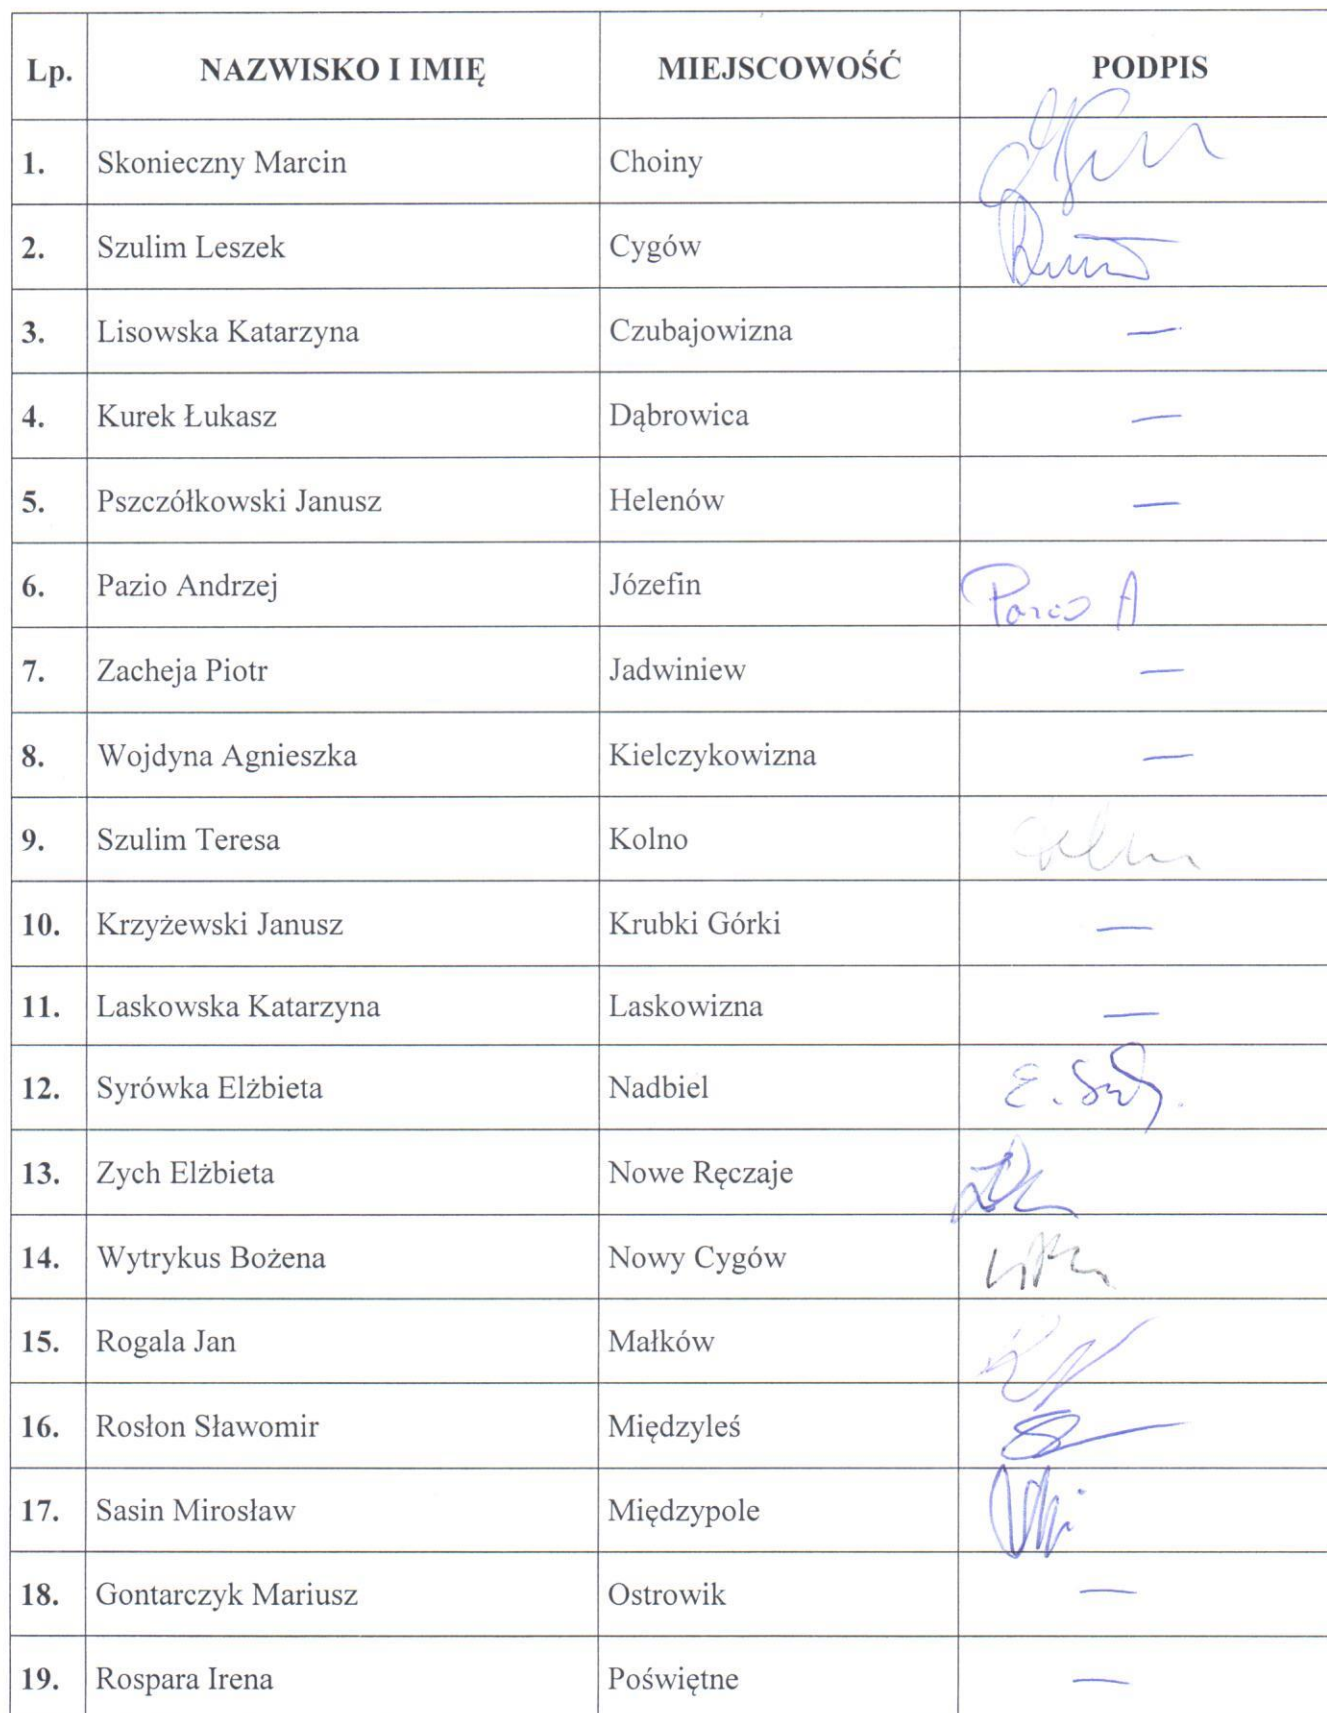 Lp. NAZWISKO I IMIĘ MIEJSCOWOŚĆ PODPIS
1. Skonieczny Marcin Choiny
2. Szulim Leszek Cygów
3. Lisowska Katarzyna Czubajowizna —
4. Kurek Łukasz Dąbrowica —
5. Pszczółkowski Janusz Helenów —
6. Pazio Andrzej Józefin Pazio A
7. Zacheja Piotr Jadwiniew —
8. Wojdyna Agnieszka Kielczykowizna —
9. Szulim Teresa Kolno
10. Krzyżewski Janusz Krubki Górki —
11. Laskowska Katarzyna Laskowizna —
12. Syrówka Elżbieta Nadbiel E.
13. Zych Elżbieta Nowe Ręczaje
14. Wytrykus Bożena Nowy Cygów
15. Rogala Jan Małków
16. Rosłon Sławomir Międzyleś
17. Sasin Mirosław Międzypole
18. Gontarczyk Mariusz Ostrowik —
19. Rospara Irena Poświętne —